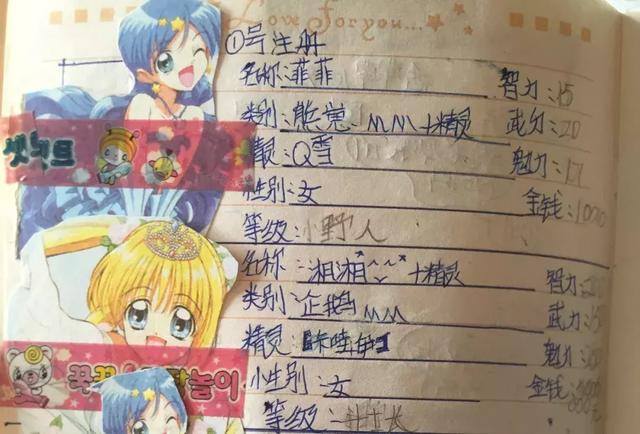 Love for you...
①号注册
名称:菲菲 智力:15
类别:熊 MM+精灵 武力:20
精灵:Q雪 魅力:17
性别:女 金钱:1000
等级:小野人
名称:湘湘 +精灵 智力:
类别:企鹅MM 武力:15
精灵:咔哇伊 魅力:
小性别:女 金钱:
等级: